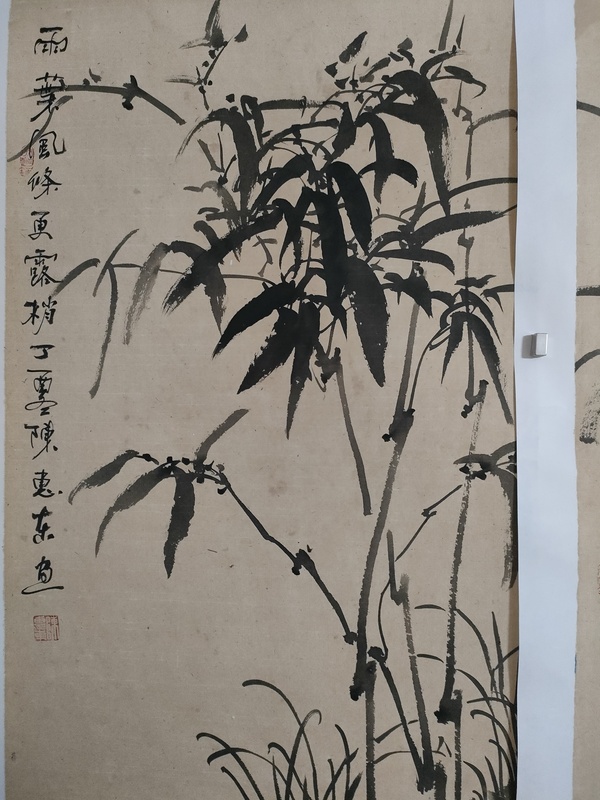 雨葉風條更露梢丁酉陳惠東畫